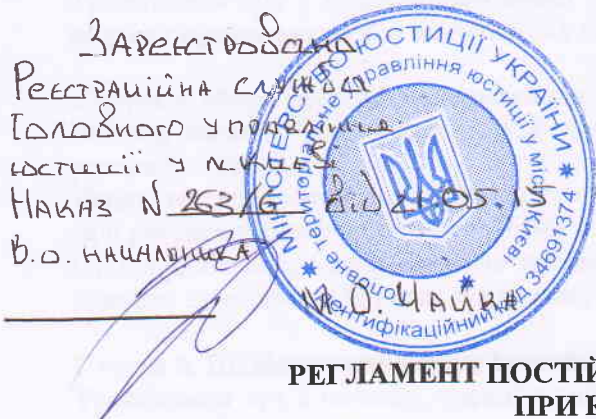 Зареєстровано
Реєстраційна служба
Головного управління
юстиції у м. Києві
Наказ N 263/6 від 21.05.15
В.о. начальника
М.О. Чайка
МІНІСТЕРСТВО ЮСТИЦІЇ УКРАЇНИ
Головне територіальне управління юстиції у місті Києві
Ідентифікаційний код 34691374
РЕГЛАМЕНТ ПОСТІЙ
ПРИ